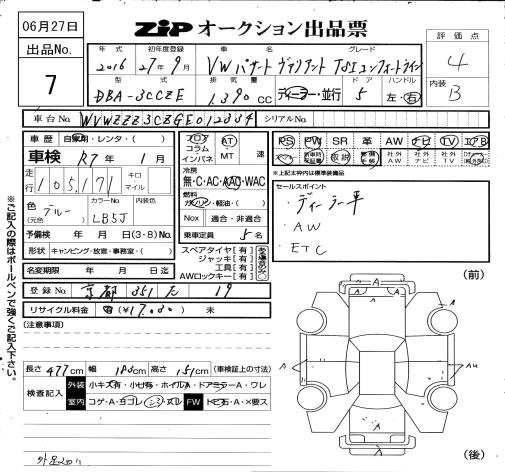 06月27日
ZIP オークション出品票
出品No.
7
評価点
4
内装
B
年式 初年度登録 車名 グレード
2016 27年9月 VW パサート ヴァリアント TSIコンフォートライン
型式 排気量 ドア ハンドル
DBA-3CCZE 1,390cc ディーラー・並行 5 左・右
車台No. シリアルNo.
車歴 自家用・レンタ・( )
車検 R7年1月
走行 105,171 キロ マイル
色(元色) ブルー カラーNo. LB5J
予備検 年 月 日(3・8)No.
形状 キャンピング・放宣・事務室・( )
名変期限 年 月 日迄
フロア コラム インパネ
AT MT 速
冷房
無・C・AC・AAC・WAC
燃料
ガソリン・軽油・( )
Nox 適合・非適合
乗車定員 5名
スペアタイヤ[有]
ジャッキ[有]
工具[有]
AWロックキー[有]
PS PW SR 革 AW ナビ TV エアB
取説 社外AW 社外ナビ 社外TV
※上記太枠内は標準装備品
セールスポイント
・ディーラー車
・AW
・ETC
登録No. 京都 351 た 19
リサイクル料金 済(¥17,080) 未
(注意事項)
長さ477cm 幅182cm 高さ151cm (車検証上の寸法)
検査記入 外装 小キズ有・小凹有・ホイルA・ドアミラーA・ワレ
室内 コゲ・A・ヨゴレ・シミ・スレ FW トビ石・A・X要ス
※ご記入の際はボールペンで強くご記入下さい。
(前)
A
A A
A
A
A
AU
A
A
(後)